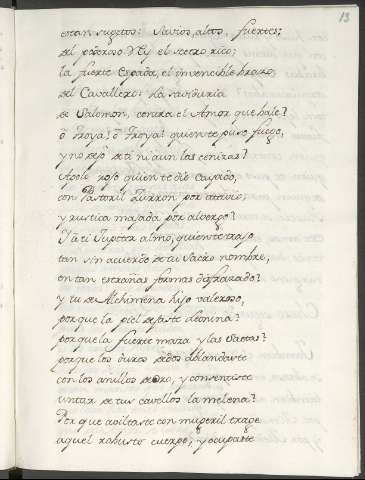 13
estan sugetos: Savios, altos, fuertes;
del poderoso Rey el cetro rico;
la fuerte espada, el invencible brazo,
del Cavallero: La saviduria
de Salomon, contra el Amor que bale?
ô Troya! ô Troya! quien te puso fuego,
y no dejo de ti ni aun las cenizas?
Apolo rojo quien te dio cayado,
con Pastoril zurron por atavio,
y rustica majada por alvergo?
Y â ti Jupiter almo, quien te trajo
tan sin acuerdo de tu sacro nombre,
en tan estrañas formas disfrazado?
y tu de Alchimena hijo valeroso,
porque la piel dejaste leonina?
porque la fuerte maza y las saetas?
porque los duros dedos ablandaste
con los anillos de oro, y consentiste
untar de tus cavellos la melena?
Por que aviltaste con mugeril trage
aquel robusto cuerpo, y ocupaste